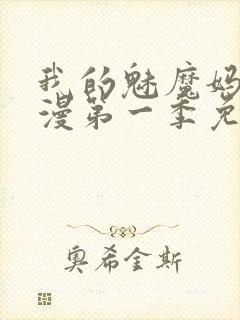 我的魅魔妈
漫第一季免
奥希金斯